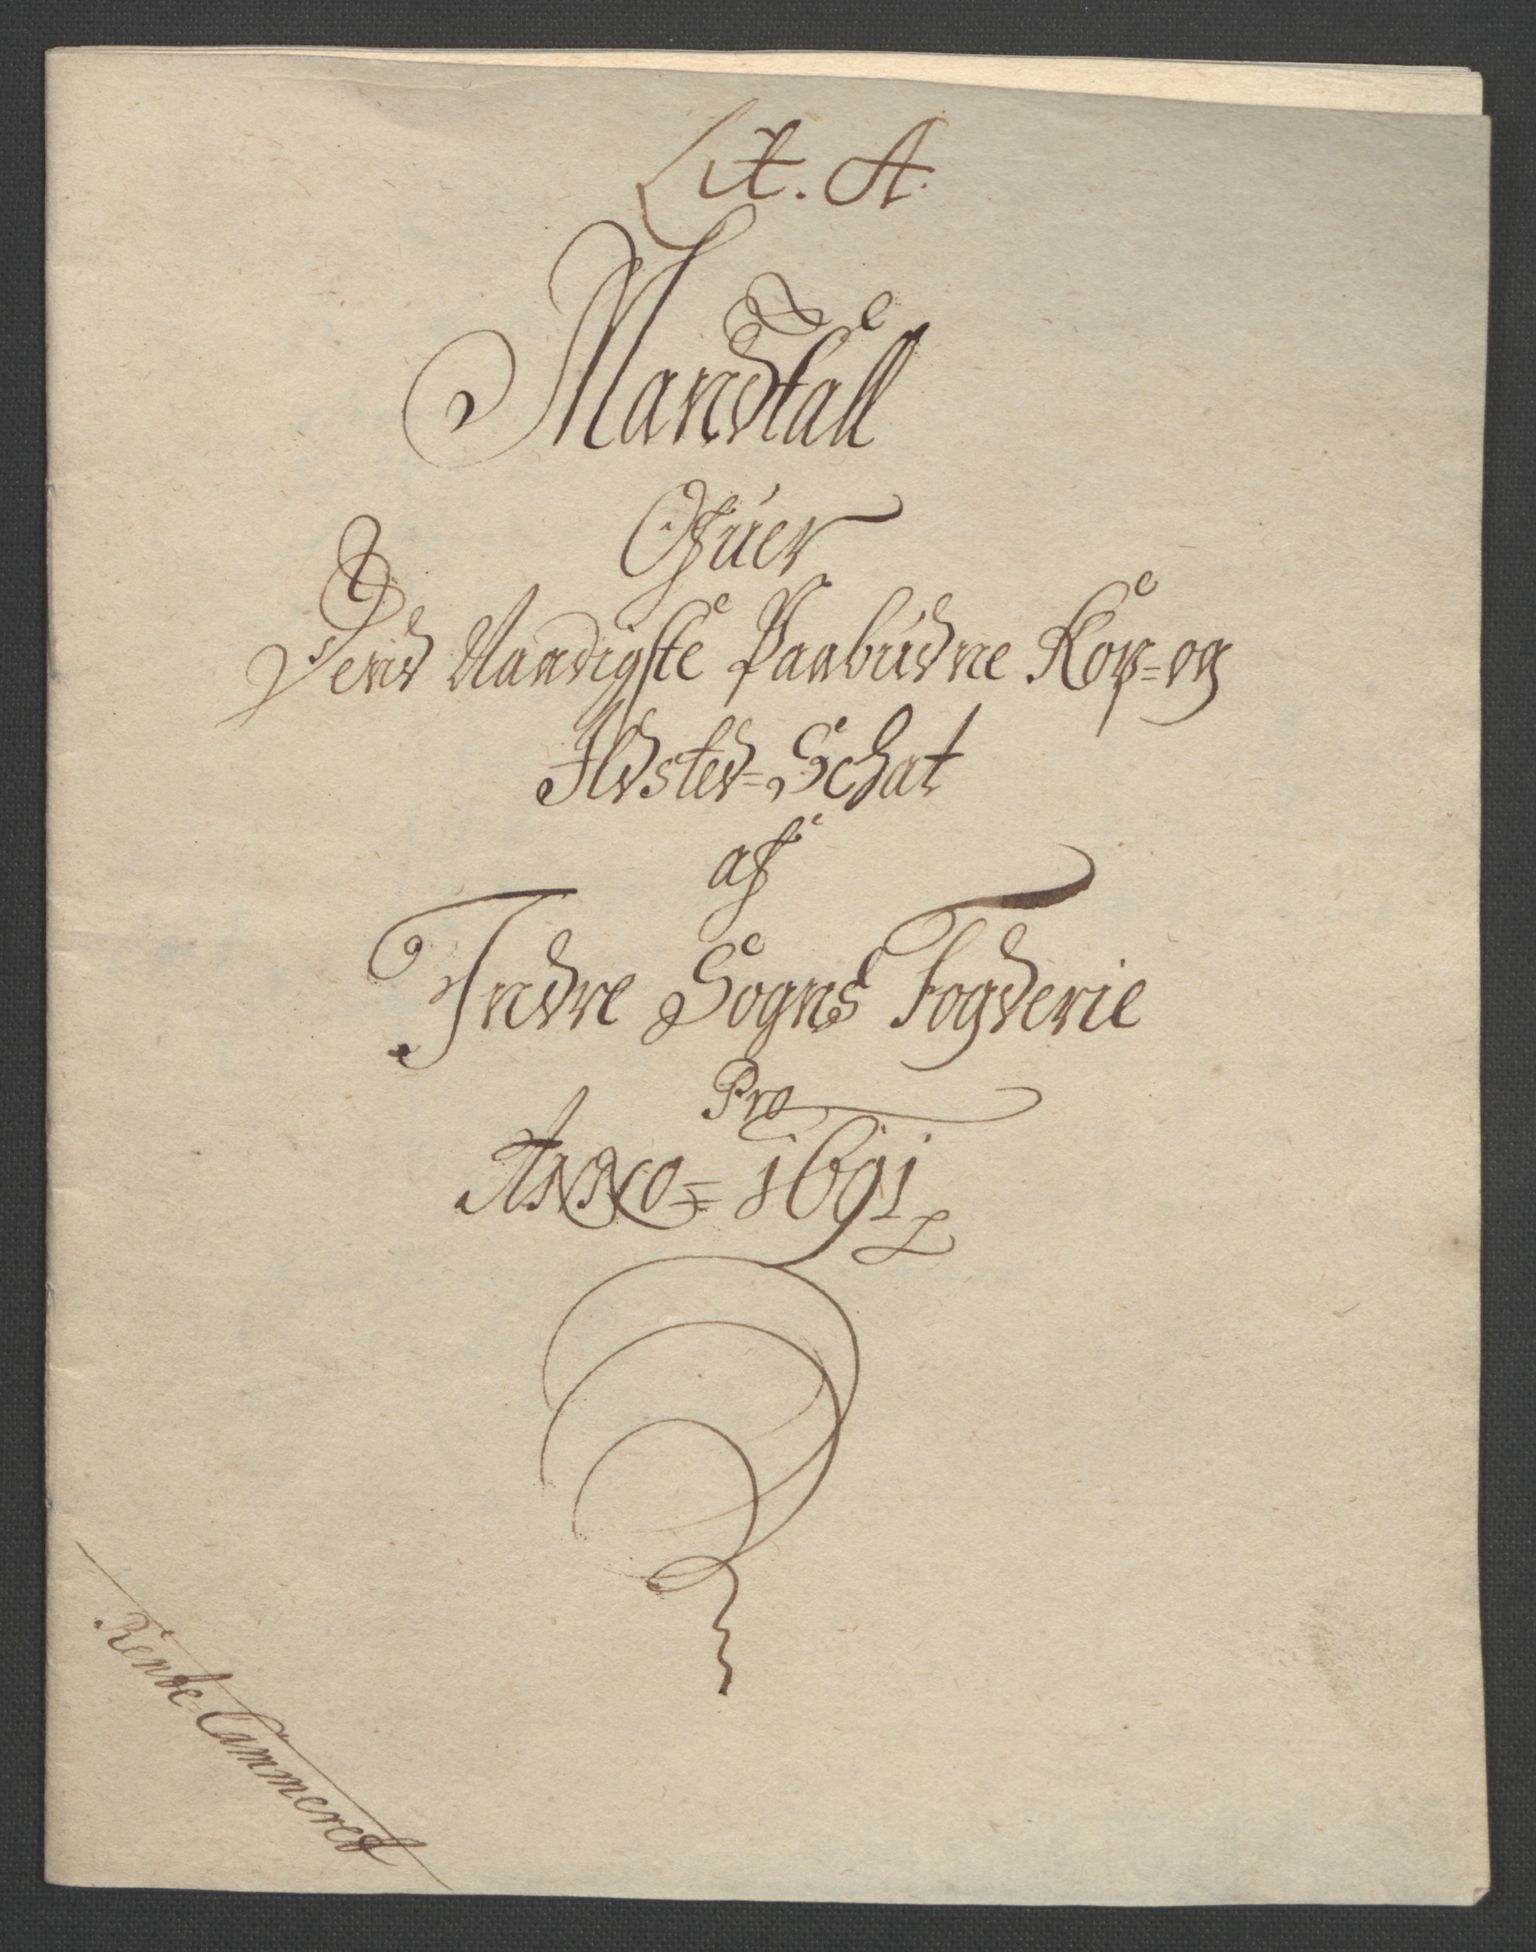 Lit. A.
Mandtall
Ofuer
Dend Naadigste Paabudne Kop- og
Ildsted-Schat
af
Indre Sogns Fogderie
Pro
ANNO = 1691
Rente-Cammeret